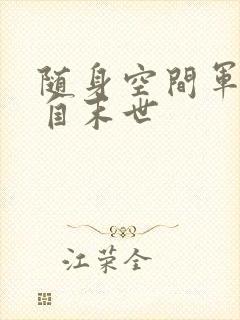 随身空間軍
自末世
江荣全